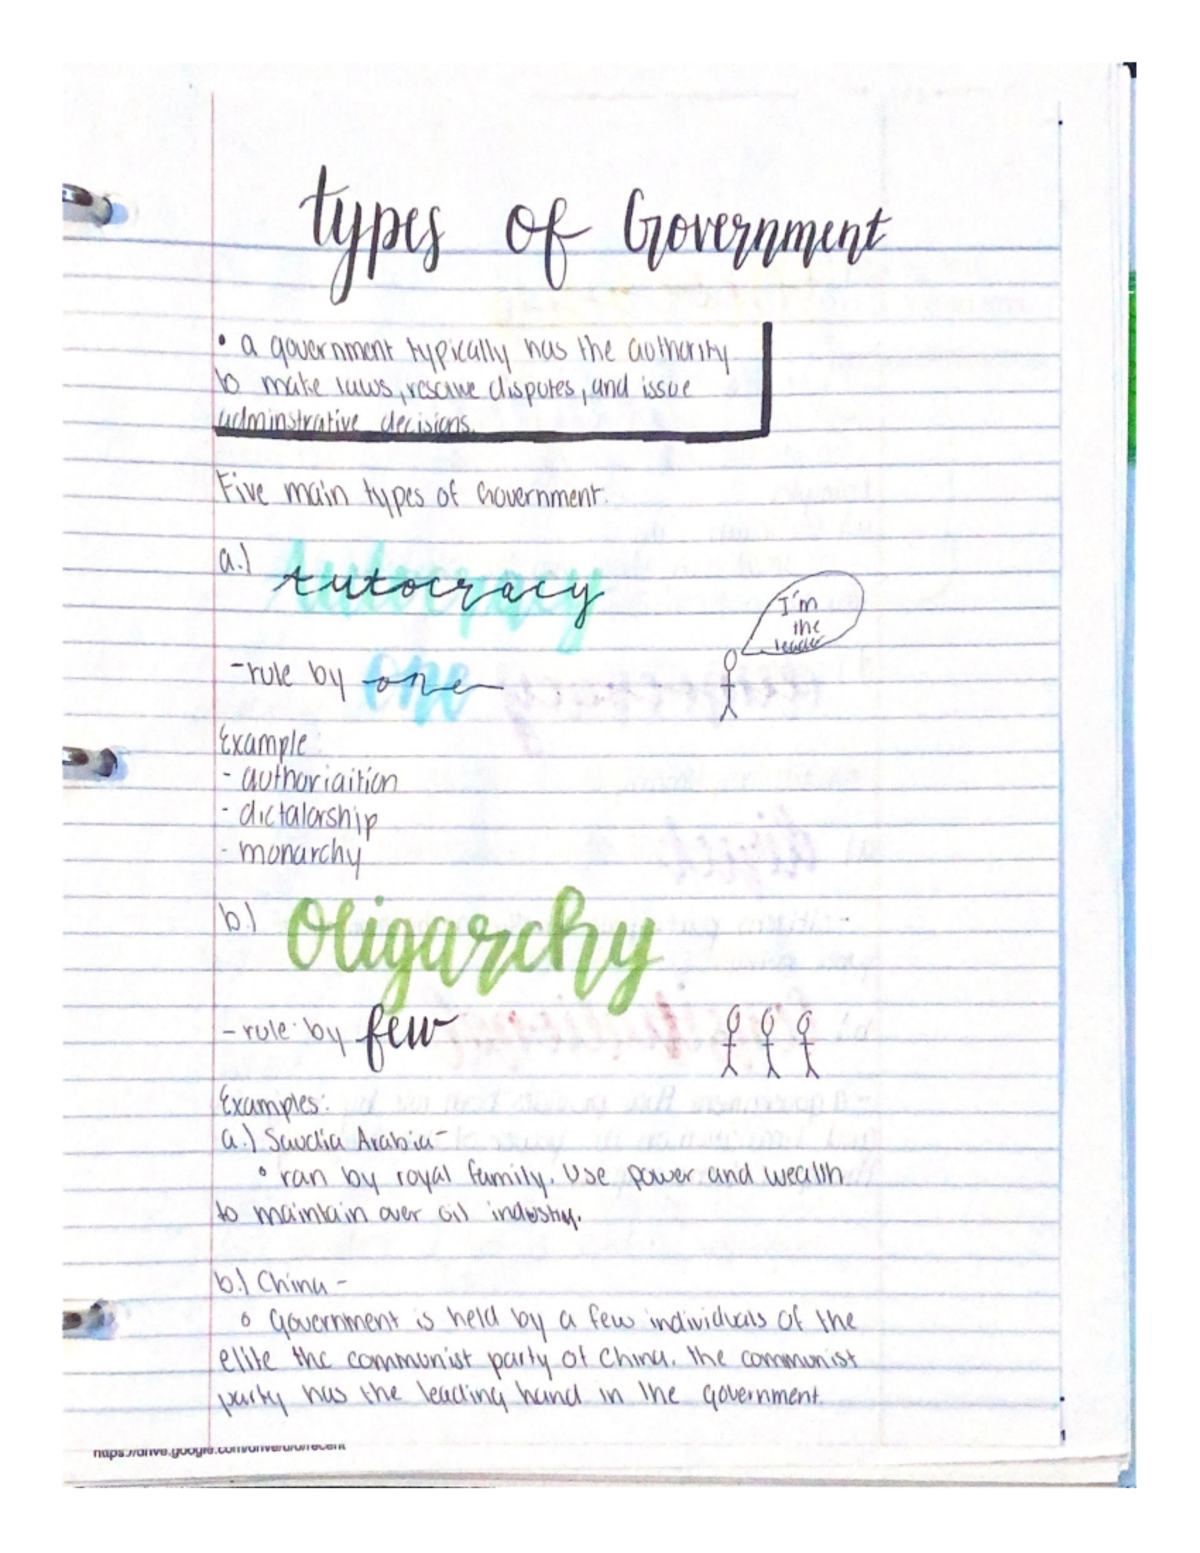 types of Government
• a government typically has the authority
to make laws, resolve disputes, and issue
adminstrative decisions.
Five main types of Government:
a.) Autocracy
I'm
the
leader
-rule by one
Example:
- authoriaition
- dictatorship
- monarchy
b.) Oligarchy
- rule by few
Examples:
a.) Saudia Arabia-
• ran by royal family. Use power and wealth
to maintain over oil industry.
b.) China -
• Government is held by a few individuals of the
elite the communist party of China. The communist
party has the leading hand in the government.
1
https://drive.google.com/drive/u/0/recent